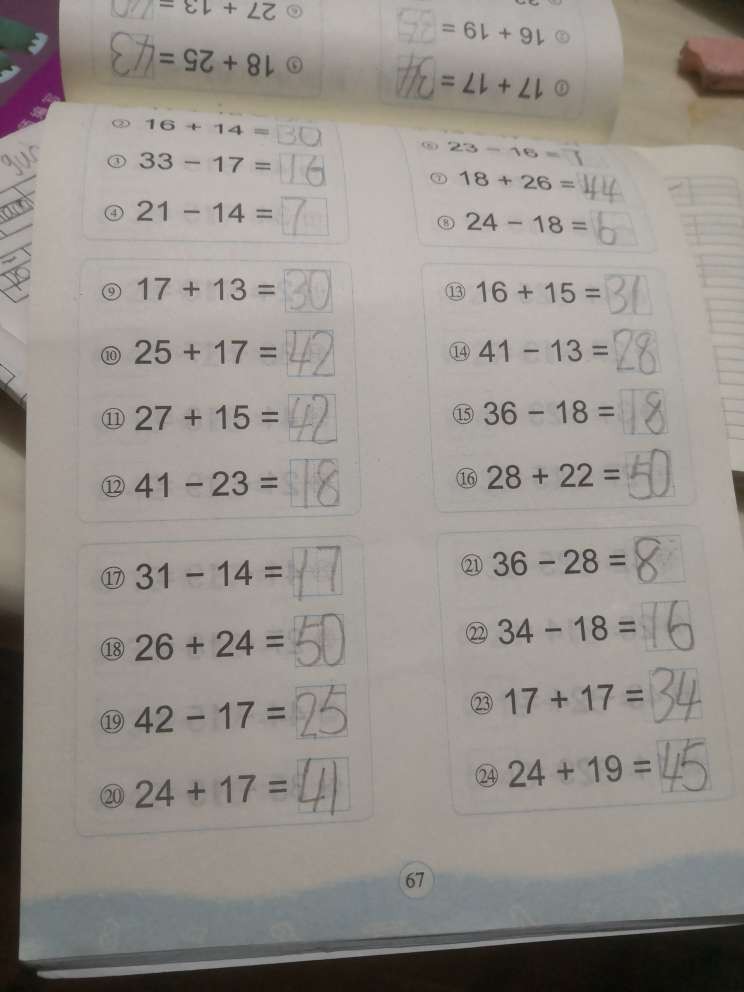 ⑥ 27 + 13 =
⑤ 18 + 25 = 43
② 16 + 19 = 35
① 17 + 17 = 34
② 16 + 14 = 30
③ 33 − 17 = 16
④ 21 − 14 = 7
⑥ 23 − 16 = 7
⑦ 18 + 26 = 44
⑧ 24 − 18 = 6
⑨ 17 + 13 = 30
⑩ 25 + 17 = 42
⑪ 27 + 15 = 42
⑫ 41 − 23 = 18
⑬ 16 + 15 = 31
⑭ 41 − 13 = 28
⑮ 36 − 18 = 18
⑯ 28 + 22 = 50
⑰ 31 − 14 = 17
⑱ 26 + 24 = 50
⑲ 42 − 17 = 25
⑳ 24 + 17 = 41
㉑ 36 − 28 = 8
㉒ 34 − 18 = 16
㉓ 17 + 17 = 34
㉔ 24 + 19 = 45
67